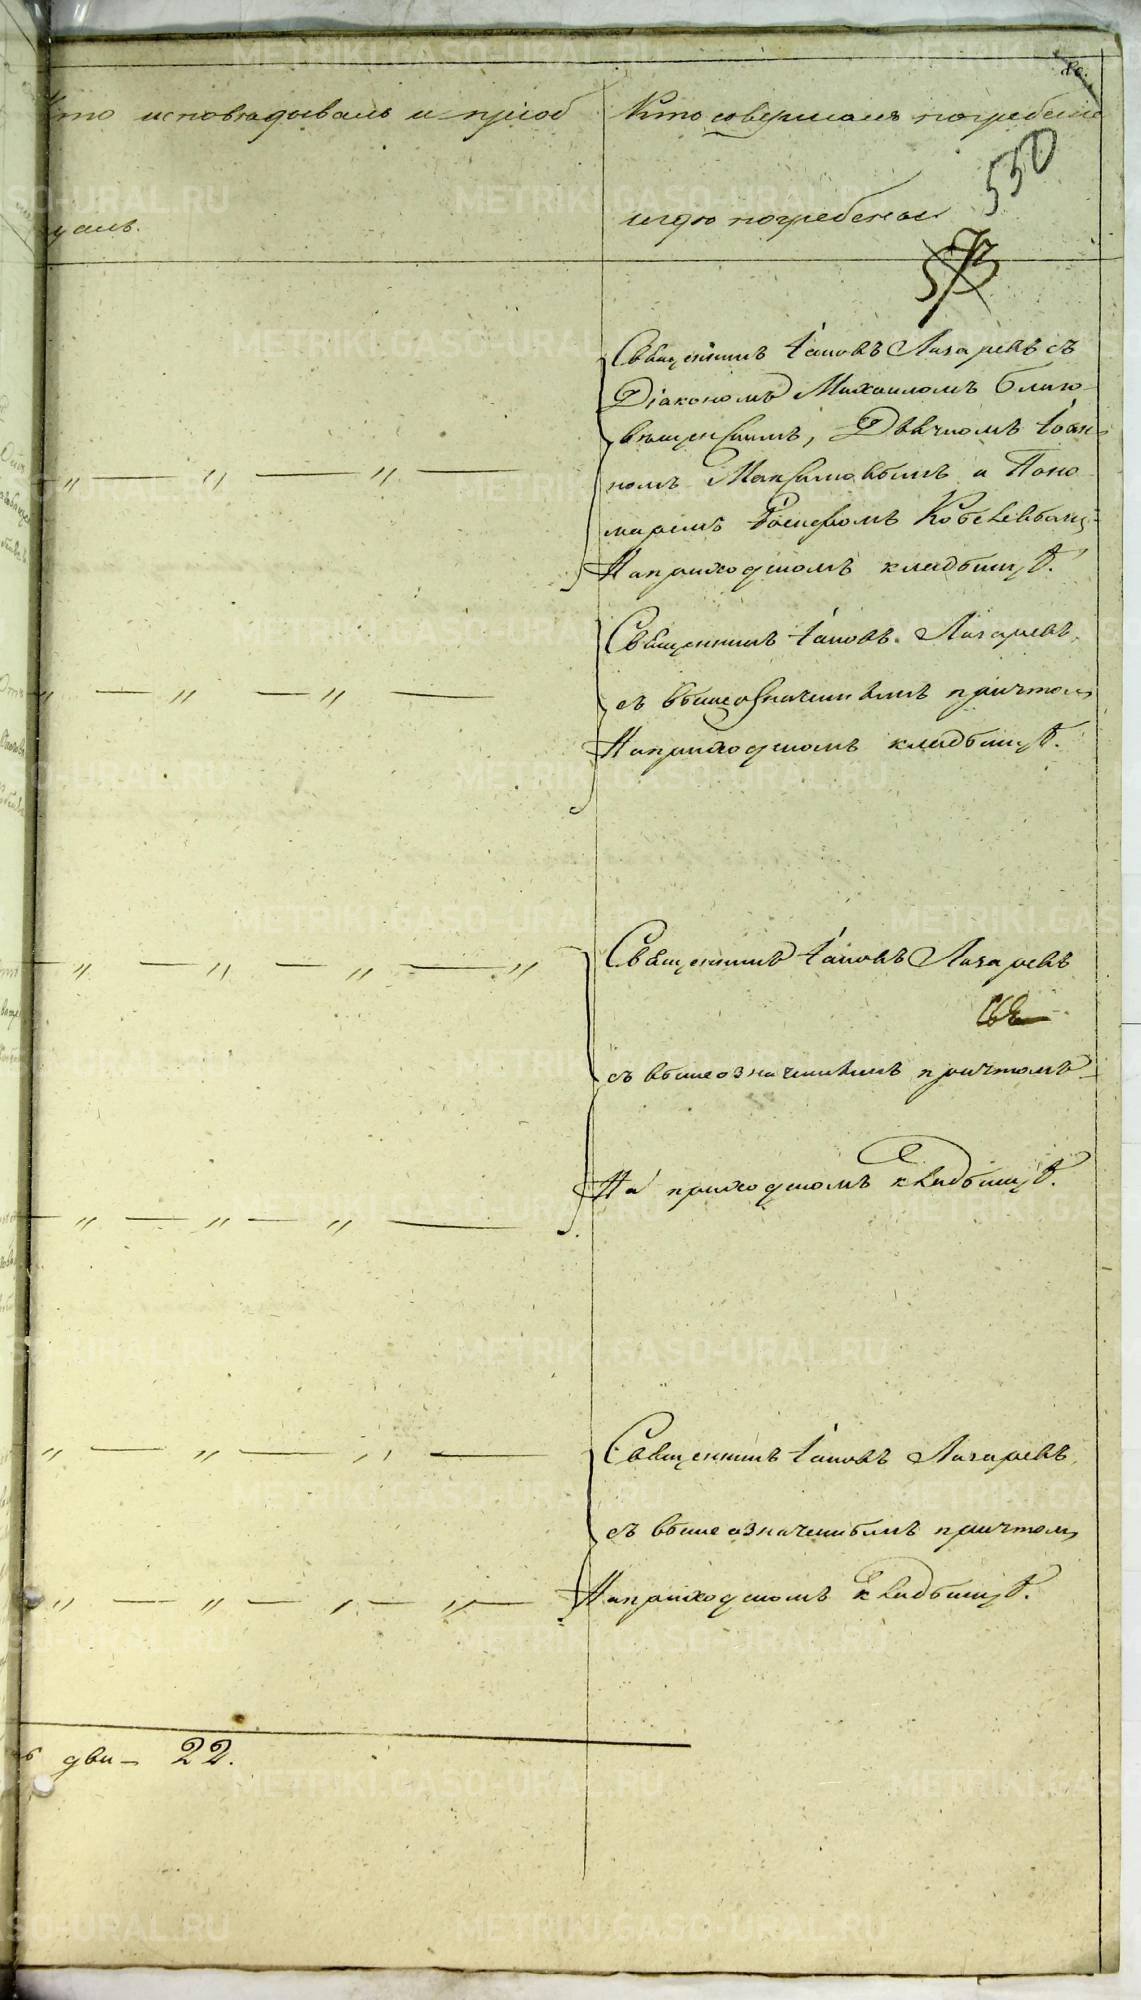 Кто исповѣдывалъ и пріоб
щалъ.
Кто совершалъ погребеніе
и гдѣ погребены
550
573
Священникъ Іаковъ Лазаревъ съ
Діакономъ Михаиломъ Благо
вѣщенскимъ, Дьячкомъ Іоан
номъ Максимовымъ и Поно
маремъ Іосифомъ
На приходскомъ кладбищѣ.
Священникъ Іаковъ Лазаревъ,
съ вышеозначеннымъ причтомъ
На приходскомъ кладбищѣ.
Священникъ Іаковъ Лазаревъ
съ вышеозначеннымъ причтомъ
На приходскомъ кладбищѣ.
Священникъ Іаковъ Лазаревъ,
съ вышеозначеннымъ причтомъ
На приходскомъ кладбищѣ.
два 22.
METRIKI.GASO-URAL.RU